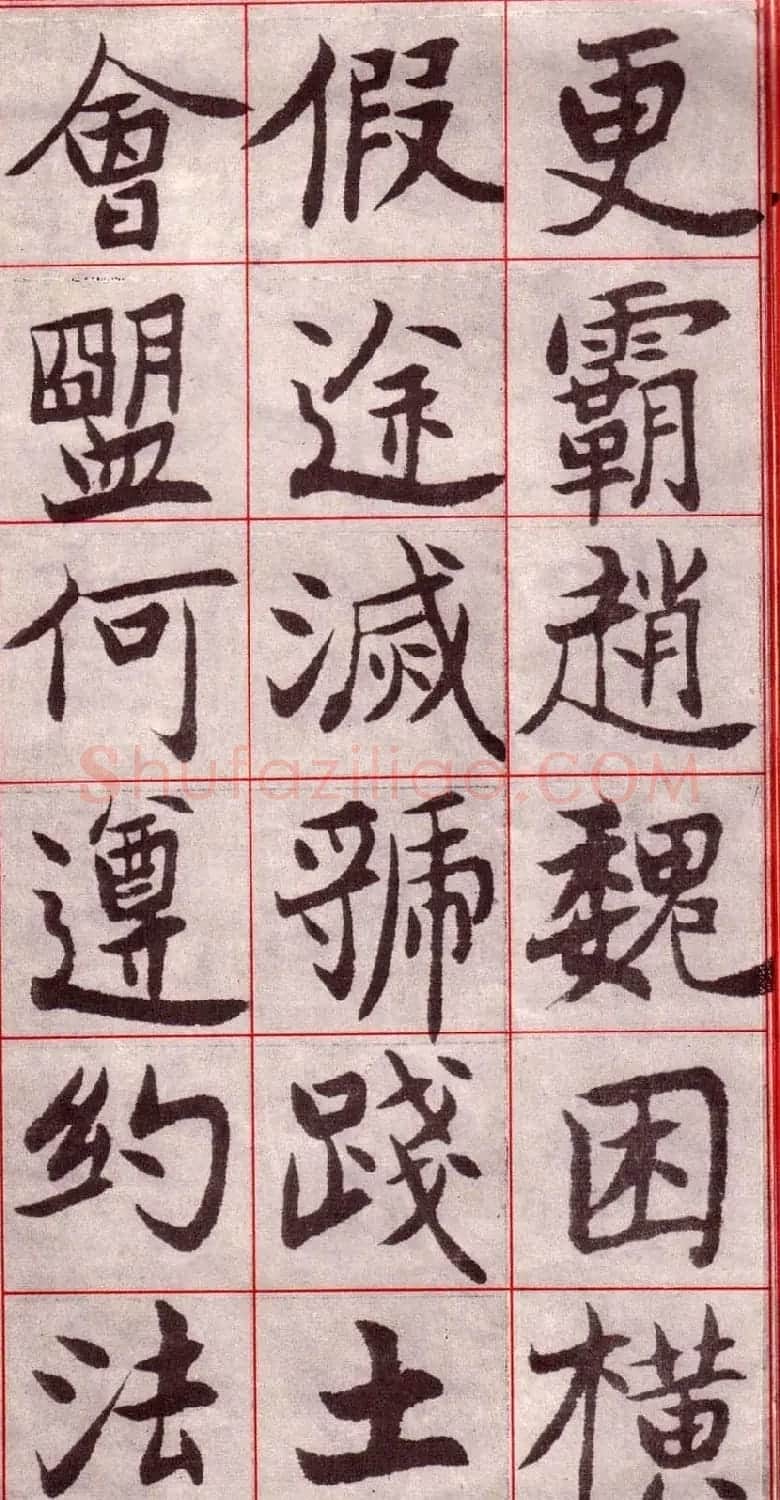 更霸趙魏困橫
假途滅虢踐土
會盟何遵約法
Shufaziliao.COM